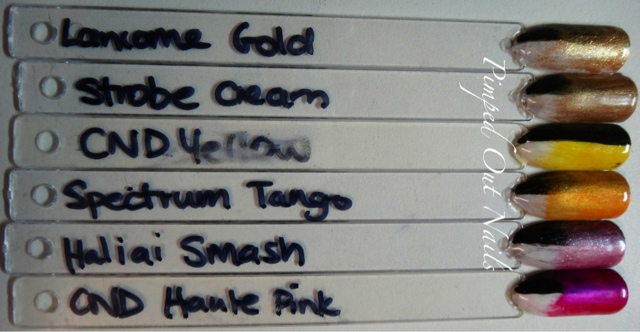 Lancome Gold
Strobe Cream
CND Yellow
Spectrum Tango
Haliai Smash
CND Haute Pink
Pimped Out Nails